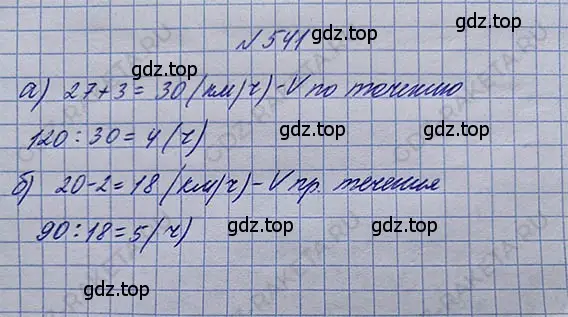 № 541
gdz.top
gdz.top gdz.top
а) 27+3=30 (км/ч) - V по течению
120:30=4 (ч)
gdz.top
б) 20-2=18 (км/ч) - V пр. течения
90:18=5 (ч)
gdz.top gdz.top
gdz.top
GDZ-RAKETA.RU